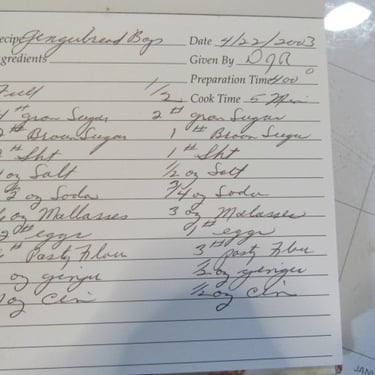 Recipe Gingerbread Boys Date 4/22/2003
Ingredients Given By DJR
Preparation Time 400°
Full 1/2 Cook Time 5 Min
4 # gran Sugar 2 # gran Sugar
2 # Brown Sugar 1 # Brown Sugar
2 # Sht 1 # Sht
1 oz Salt 1/2 oz Salt
1/2 oz Soda 3/4 oz Soda
6 oz Mallasses 3 oz Malasses
2 # eggs 1 # eggs
6 # Pasty Flour 3 # Pasty Flour
1 oz ginger 1/2 oz ginger
1 oz Cin 1/2 oz Cin